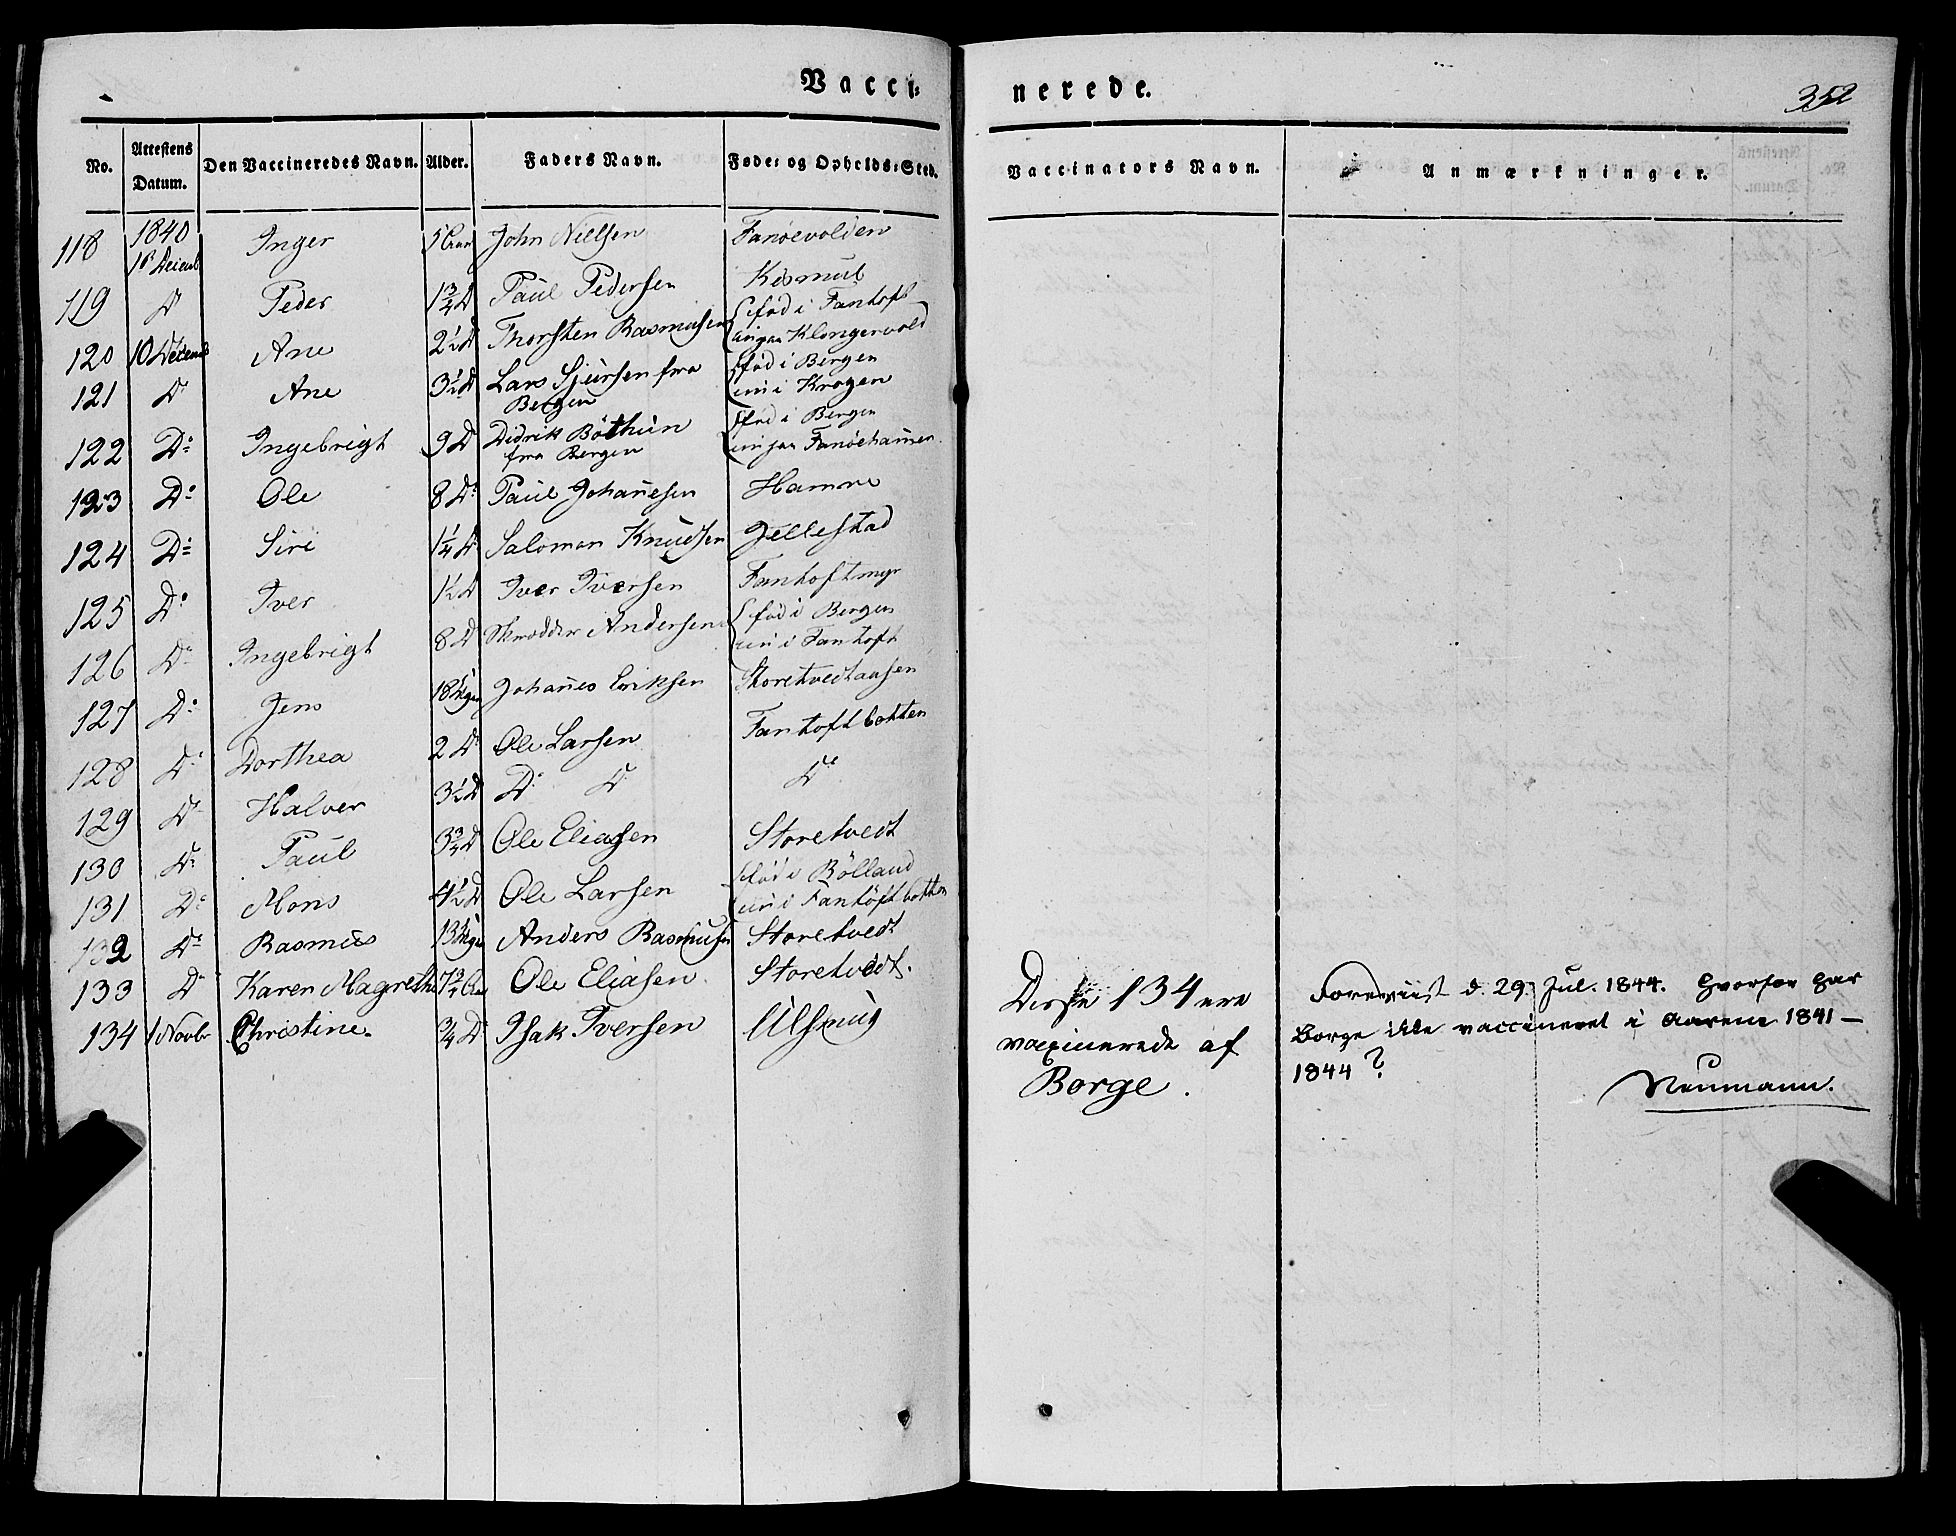 Vacci=
nerede.
352
No. Attestens Datum. Den Vaccineredes Navn. Alder. Faders Navn. Føde= og Opholds=Sted.
Vaccinators Navn. Anmærkninger.
118 1840 Inger 5 Aar John Nielsen Fanøevolden
119 D Peder 1 3/4 D Paul Pedersen Kismul
120 10 Decemb Ane 2 1/2 D Thorsten Rasmusen født i Fantoft
Klongervold
121 D Ane 3 1/2 D Lars Sjursen fra født i Bergen
Bergen nu i Krogen
122 D: Ingebrigt 9 D Didrik Böthun født i Bergen
fra Bergen Fanøehaugen
123 D: Ole 8 D: Paul Johanesen Hamre
124 D: Siri 1 1/4 D Salomon Knudsen Jellestad
125 D: Iver 1 1/2 D Iver Iversen Fantoftmyr
126 D: Ingebrigt 8 D Skrædder Andersen født i Bergen
nu i Fantoft
127 D: Jens 18 Uger Johanes Eriksen Storetvedtaasen
128 D: Dorthea 2 D: Ole Larsen Fantoftbotten
129 D: Halver 3 1/2 D D: D: D:
130 D: Paul 3 3/4 D Ole Eliasen Storetvedt
131 D: Mons 4 1/2 D Ole Larsen født i Bölland
nu i Fantöftbotten
132 D: Rasmus 13 Uger Anders Rasmusen Storetvedt
133 D Karen Magrethe 7 3/4 Aar Ole Eliasen. Storetvedt.
134 1 Novbr Christine. 3/4 D: Isak Iversen Ulsmug
Disse 134 ere
vaccinerede af
Borge.
Foreviist d. 29. Jul. 1844. Hvorfor har
Borge ikke vaccineret i Aarene 1841 —
1844?
Neumann.